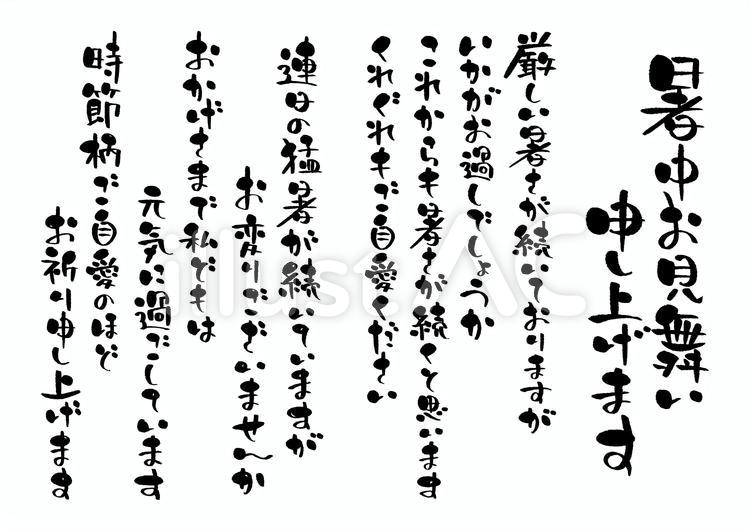 暑中お見舞い
申し上げます
厳しい暑さが続いておりますが
いかがお過しでしょうか
これからも暑さが続くと思います
くれぐれもご自愛ください
連日の猛暑が続いていますが
お変りございませんか
おかげさまで私どもは
元気に過ごしています
時節柄ご自愛のほど
お祈り申し上げます
illustAC